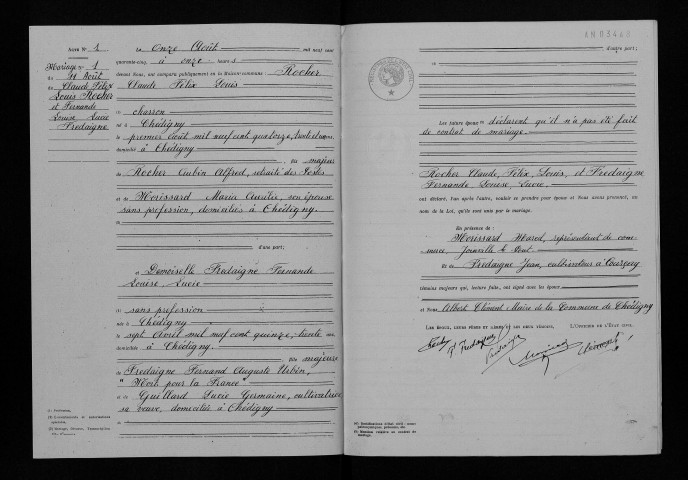 Acte N° 1
Mariage n° 1
du 11 Août
de Claude Félix
Louis Rocher
et Fernande
Louise Lucie
Fredaigne
Le onze Août mil neuf cent
quarante-cinq à onze heures
devant Nous, ont comparu publiquement en la Maison commune : Rocher
Claude Félix Louis
(1) charron
né à Chédigny
le premier août mil neuf cent quatorze, trente et un ans,
domicilié à Chédigny
fils majeur
de Rocher Aubin Alfred, retraité des Postes
et de Morissard Maria Aurélie, son épouse
sans profession, domiciliés à Chédigny.
d'une part ;
et Demoiselle Fredaigne Fernande
Louise Lucie
(1) sans profession
née à Chédigny
le sept Avril mil neuf cent quinze, trente ans
domiciliée à Chédigny.
fille majeure
de Fredaigne Fernand Auguste Urbin,
"Mort pour la France"
et de Guillard Lucie Germaine, cultivatrice
sa veuve, domiciliée à Chédigny
(1) Profession.
d'autre part ;
et
Les futurs époux déclarent qu'il n'a pas été fait
de contrat de mariage.
Rocher Claude, Félix, Louis, et Fredaigne
Fernande, Louise, Lucie,
ont déclaré, l'un après l'autre, vouloir se prendre pour époux et Nous avons prononcé, au
nom de la Loi, qu'ils sont unis par le mariage.
En présence de :
Morissard Marcel, représentant de com-
merce, Joinville le Pont
et de Fredaigne Jean, cultivateur à Courçay
témoins majeurs qui, lecture faite, ont signé avec les époux
et Nous, Albert Clément Maire de la Commune de Chédigny
Les époux, leurs pères et mères et les deux témoins, L'Officier de l'État civil,